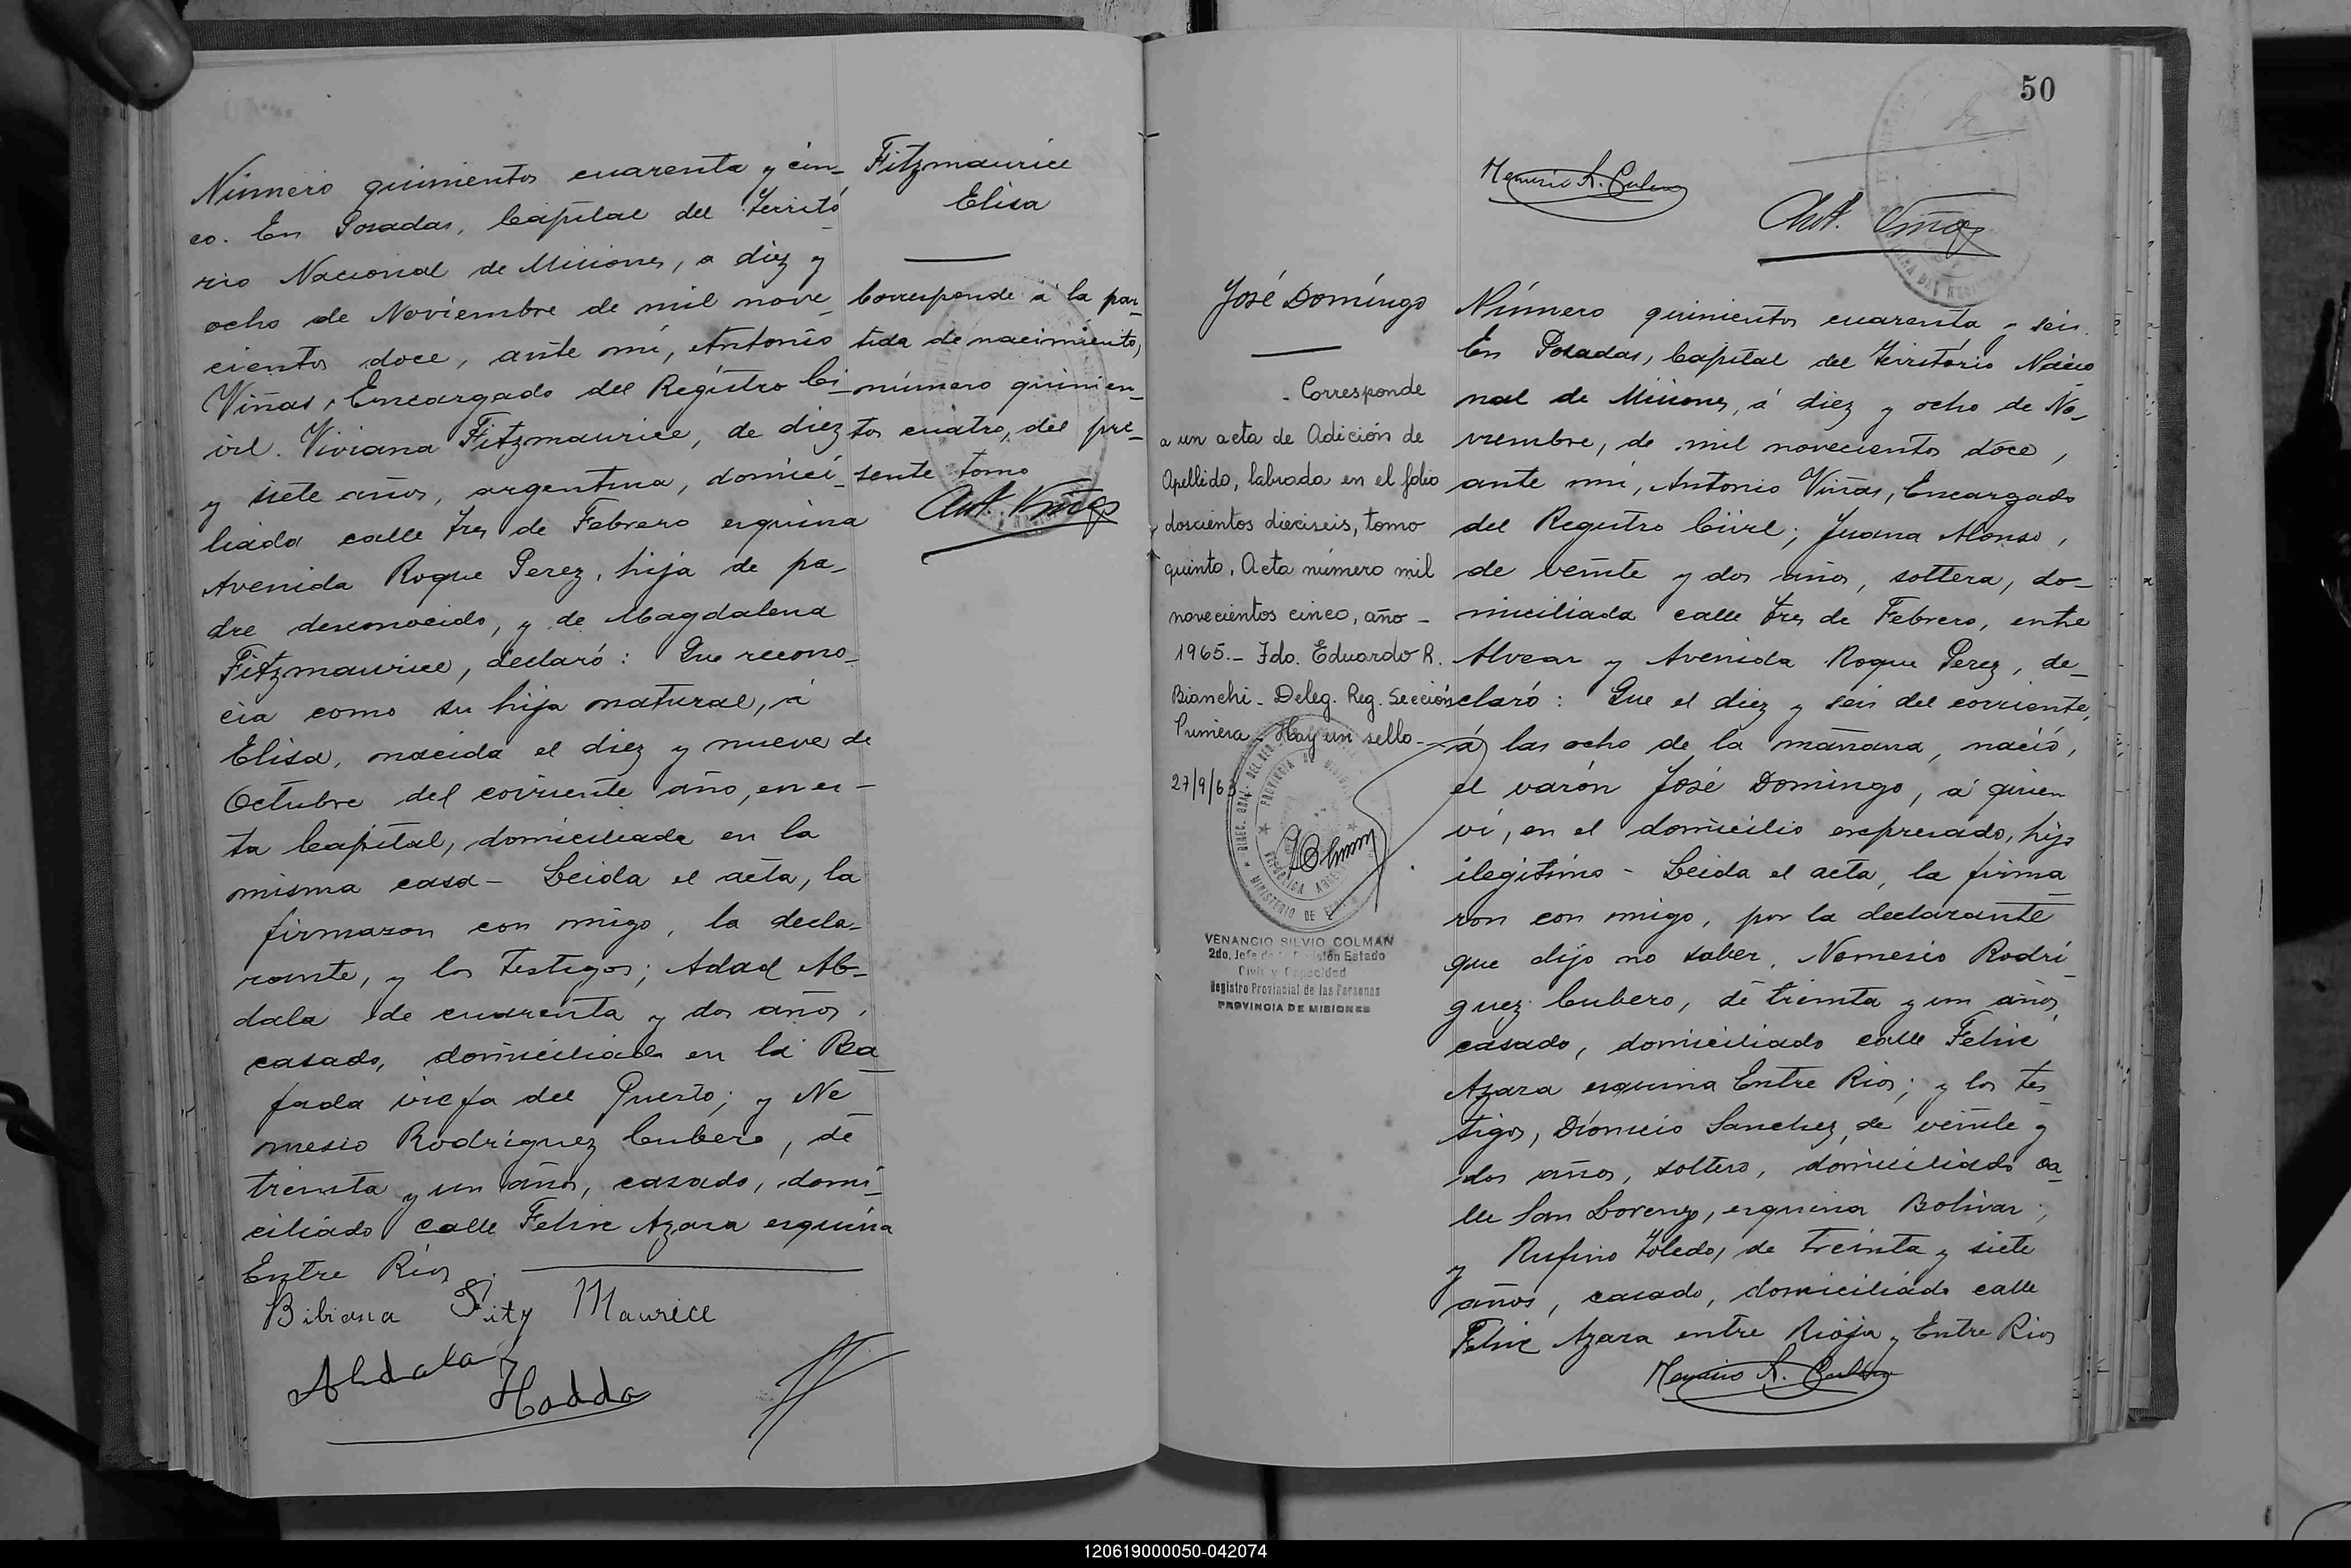 Número quinientos cuarenta y cin-
co. En Posadas, Capital del Territó
rio Nacional de Misiones, a diez y
ocho de Noviembre de mil nove-
cientos doce, ante mí, Antonio
Viñas, Encargado del Registro Ci-
vil. Viviana Fitzmaurice, de diez
y siete años, argentina, domici-
liada calle tres de Febrero esquina
Avenida Roque Perez, hija de pa-
dre desconocido, y de Magdalena
Fitzmaurice, declaró: Que recono-
cia como su hija natural, á
Elisa, nacida el diez y nueve de
Octubre del corriente año, en es-
ta Capital, domiciliada en la
misma casa - Leida el acta, la
firmaron con migo, la decla-
rante, y los testigos; Adad Ab-
dala de cuarenta y dos años,
casado, domiciliado en la Ba-
jada vieja del Puerto; y Ne
mesio Rodríguez Cubero, de
treinta y un años, casado, domi-
ciliado calle Felix Azara esquina
Entre Rios
Bibiana Fity Maurice
Abdala
Hadda
Fitzmaurice
Elisa
Corresponde a la par-
tida de nacimiento,
número quinien-
tos cuatro, del pre-
sente tomo
Ant. Viñas
50
Ant. Viñas
José Domingo
- Corresponde
a un acta de Adición de
Apellido, labrada en el folio
doscientos dieciseis, tomo
quinto, Acta número mil
novecientos cinco, año -
1965.- Fdo. Eduardo R.
Bianchi - Deleg. Reg. Sección
Primera - Hay un sello -
27/9/65
VENANCIO SILVIO COLMAN
2do. Jefe de la División Estado
Civil y Capacidad
Registro Provincial de las Personas
PROVINCIA DE MISIONES
Número quinientos cuarenta y seis.
En Posadas, Capital del Territorio Nacio
nal de Misiones, á diez y ocho de No-
viembre, de mil novecientos doce,
ante mí, Antonio Viñas, Encargado
del Registro Civil; Juana Alonso,
de veinte y dos años, soltera, do-
miciliada calle tres de Febrero, entre
Alvear y Avenida Roque Perez, de-
claró: Que el diez y seis del corriente,
á las ocho de la mañana, nació,
el varón José Domingo, á quien
ví, en el domicilio expresado, hijo
ilegitimo - Leida el acta, la firma
ron con migo, por la declarante
que dijo no saber, Nemesio Rodrí-
guez Cubero, de treinta y un años,
casado, domiciliado calle Felix
Azara esquina Entre Rios; y los tes
tigos, Dionicio Sanchez, de veinte y
dos años, soltero, domiciliado ca-
lle San Lorenzo, esquina Bolivar;
y Rufino Toledo, de treinta y siete
años, casado, domiciliado calle
Felix Azara entre Rioja y Entre Rios
120619000050-042074